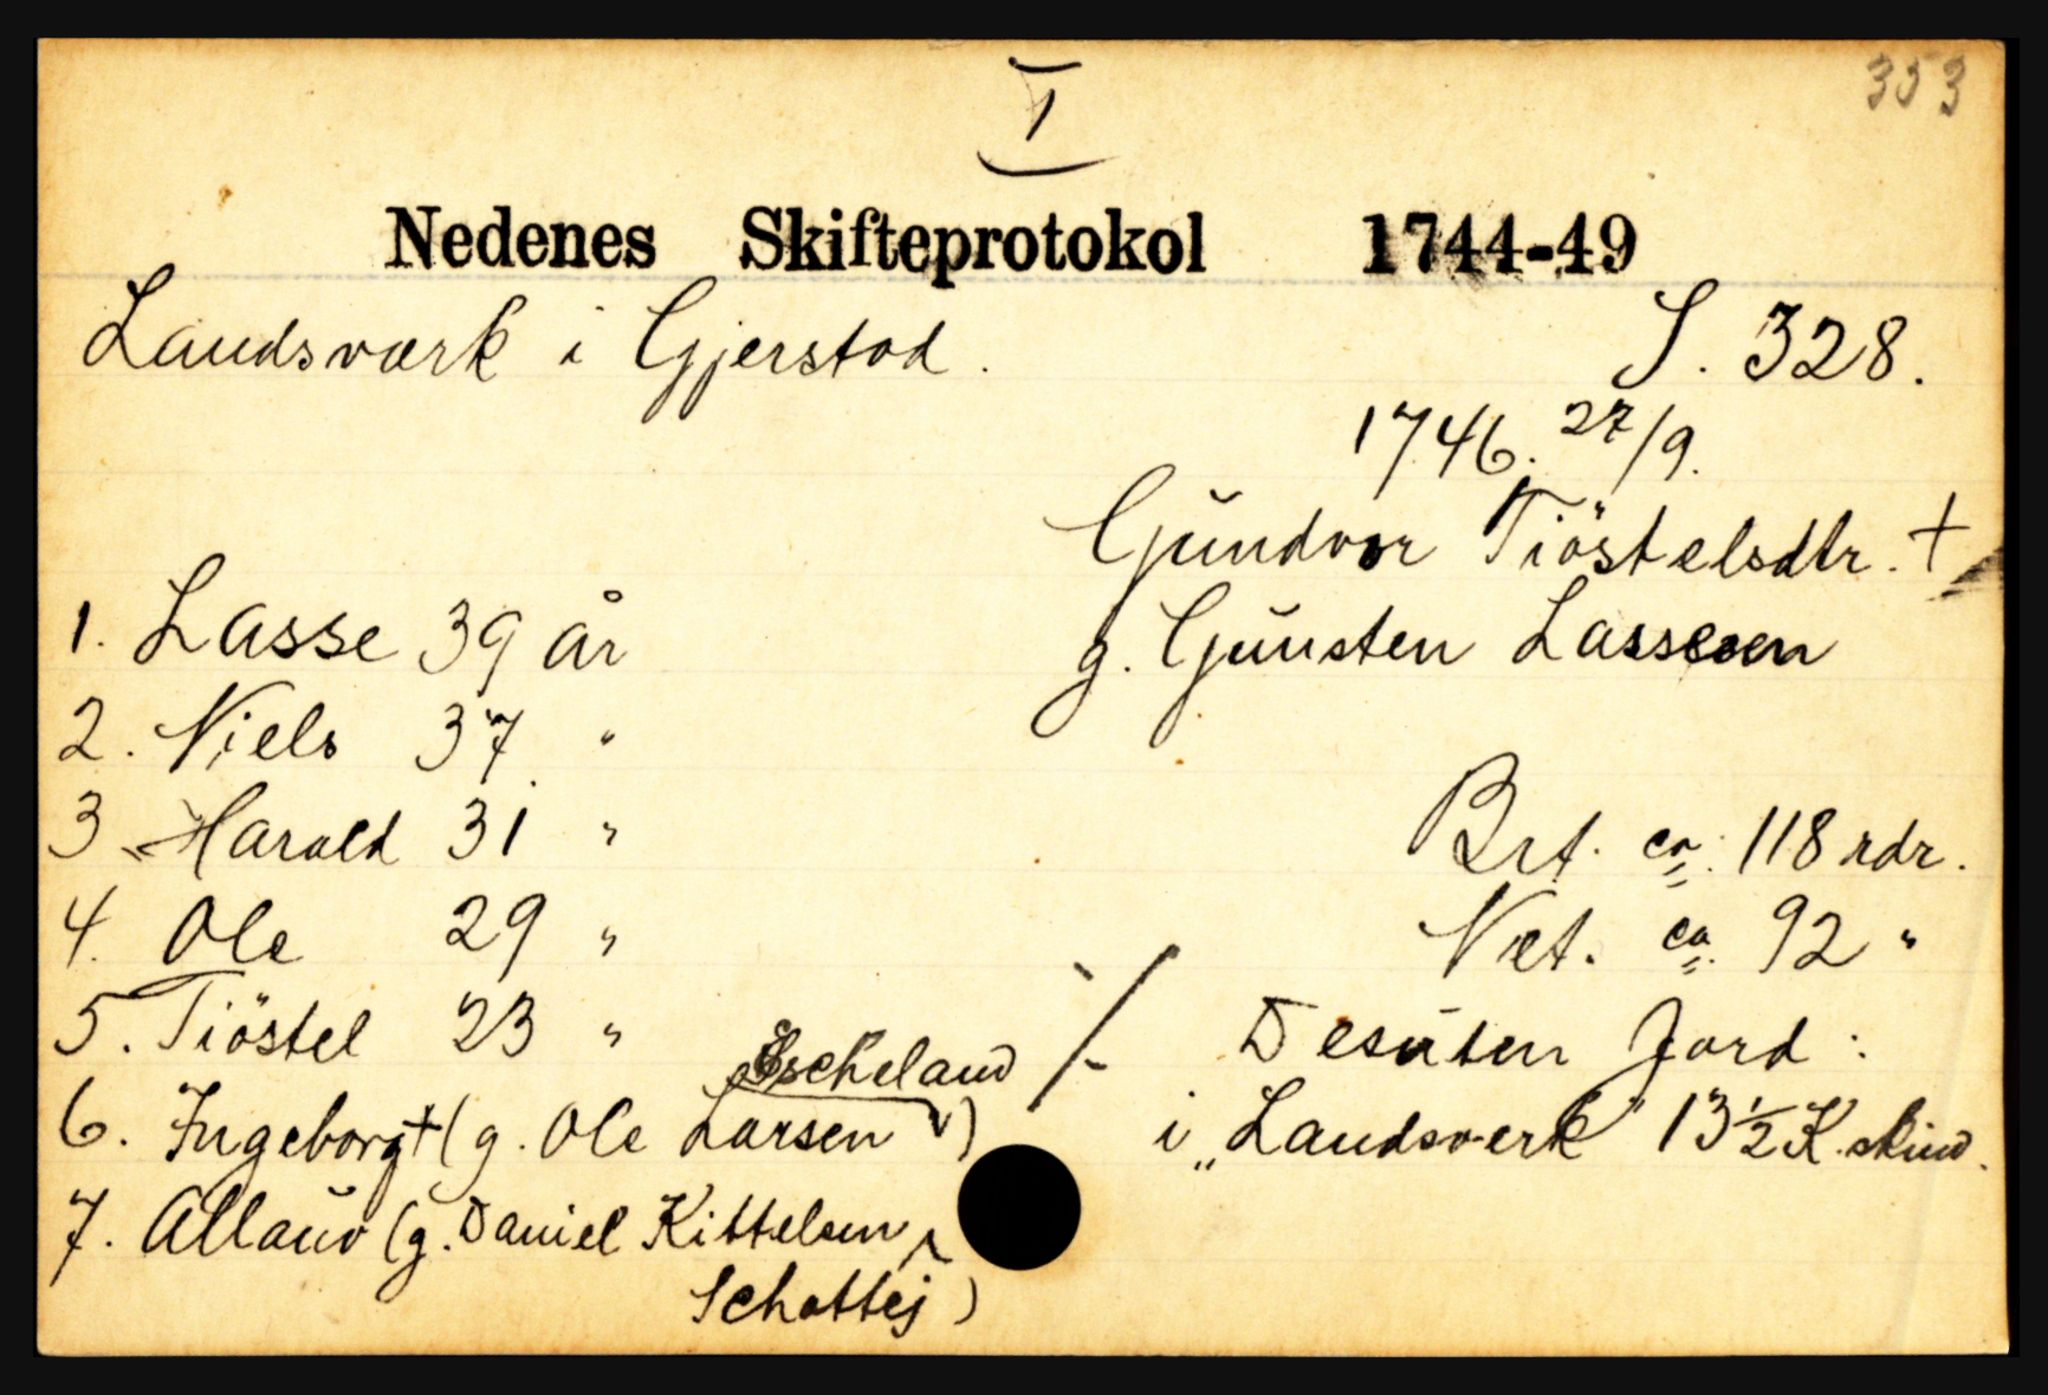 I
353
Nedenes Skifteprotokol 1744-49
Landsværk i Gjerstad.
S. 328.
1746. 27/9.
Gŭndvor Tiöstelsdtr. +
g. Gŭnsten Lassesen
1. Lasse 39 år
2. Niels 37 "
3. Harald 31 "
4. Ole 29 "
5. Tiöstel 23 "
6. Ingeborg + (g. Ole Larsen Escheland)
7. Allaŭv (g. Daniel Kittelsen,
Schattej)
Brt. ca. 118 rdr.
Net. ca. 92 "
Desŭten Jord:
i „Landsverk" 13 1/2 K. skind.